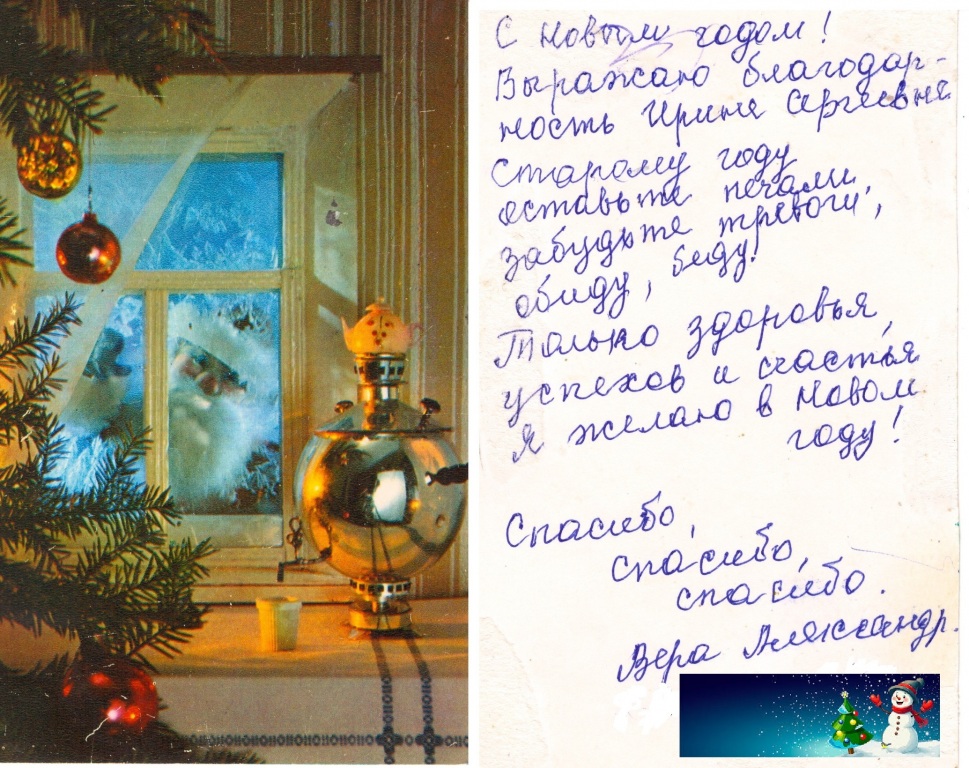 С Новым годом!
Выражаю благодар-
ность Ирине Сергеевне.
Старому году
оставьте печали,
забудьте тревоги,
обиду, беду.
Только здоровья,
успехов и счастья
я желаю в Новом
году!
Спасибо,
спасибо,
спасибо.
Вера Александр.